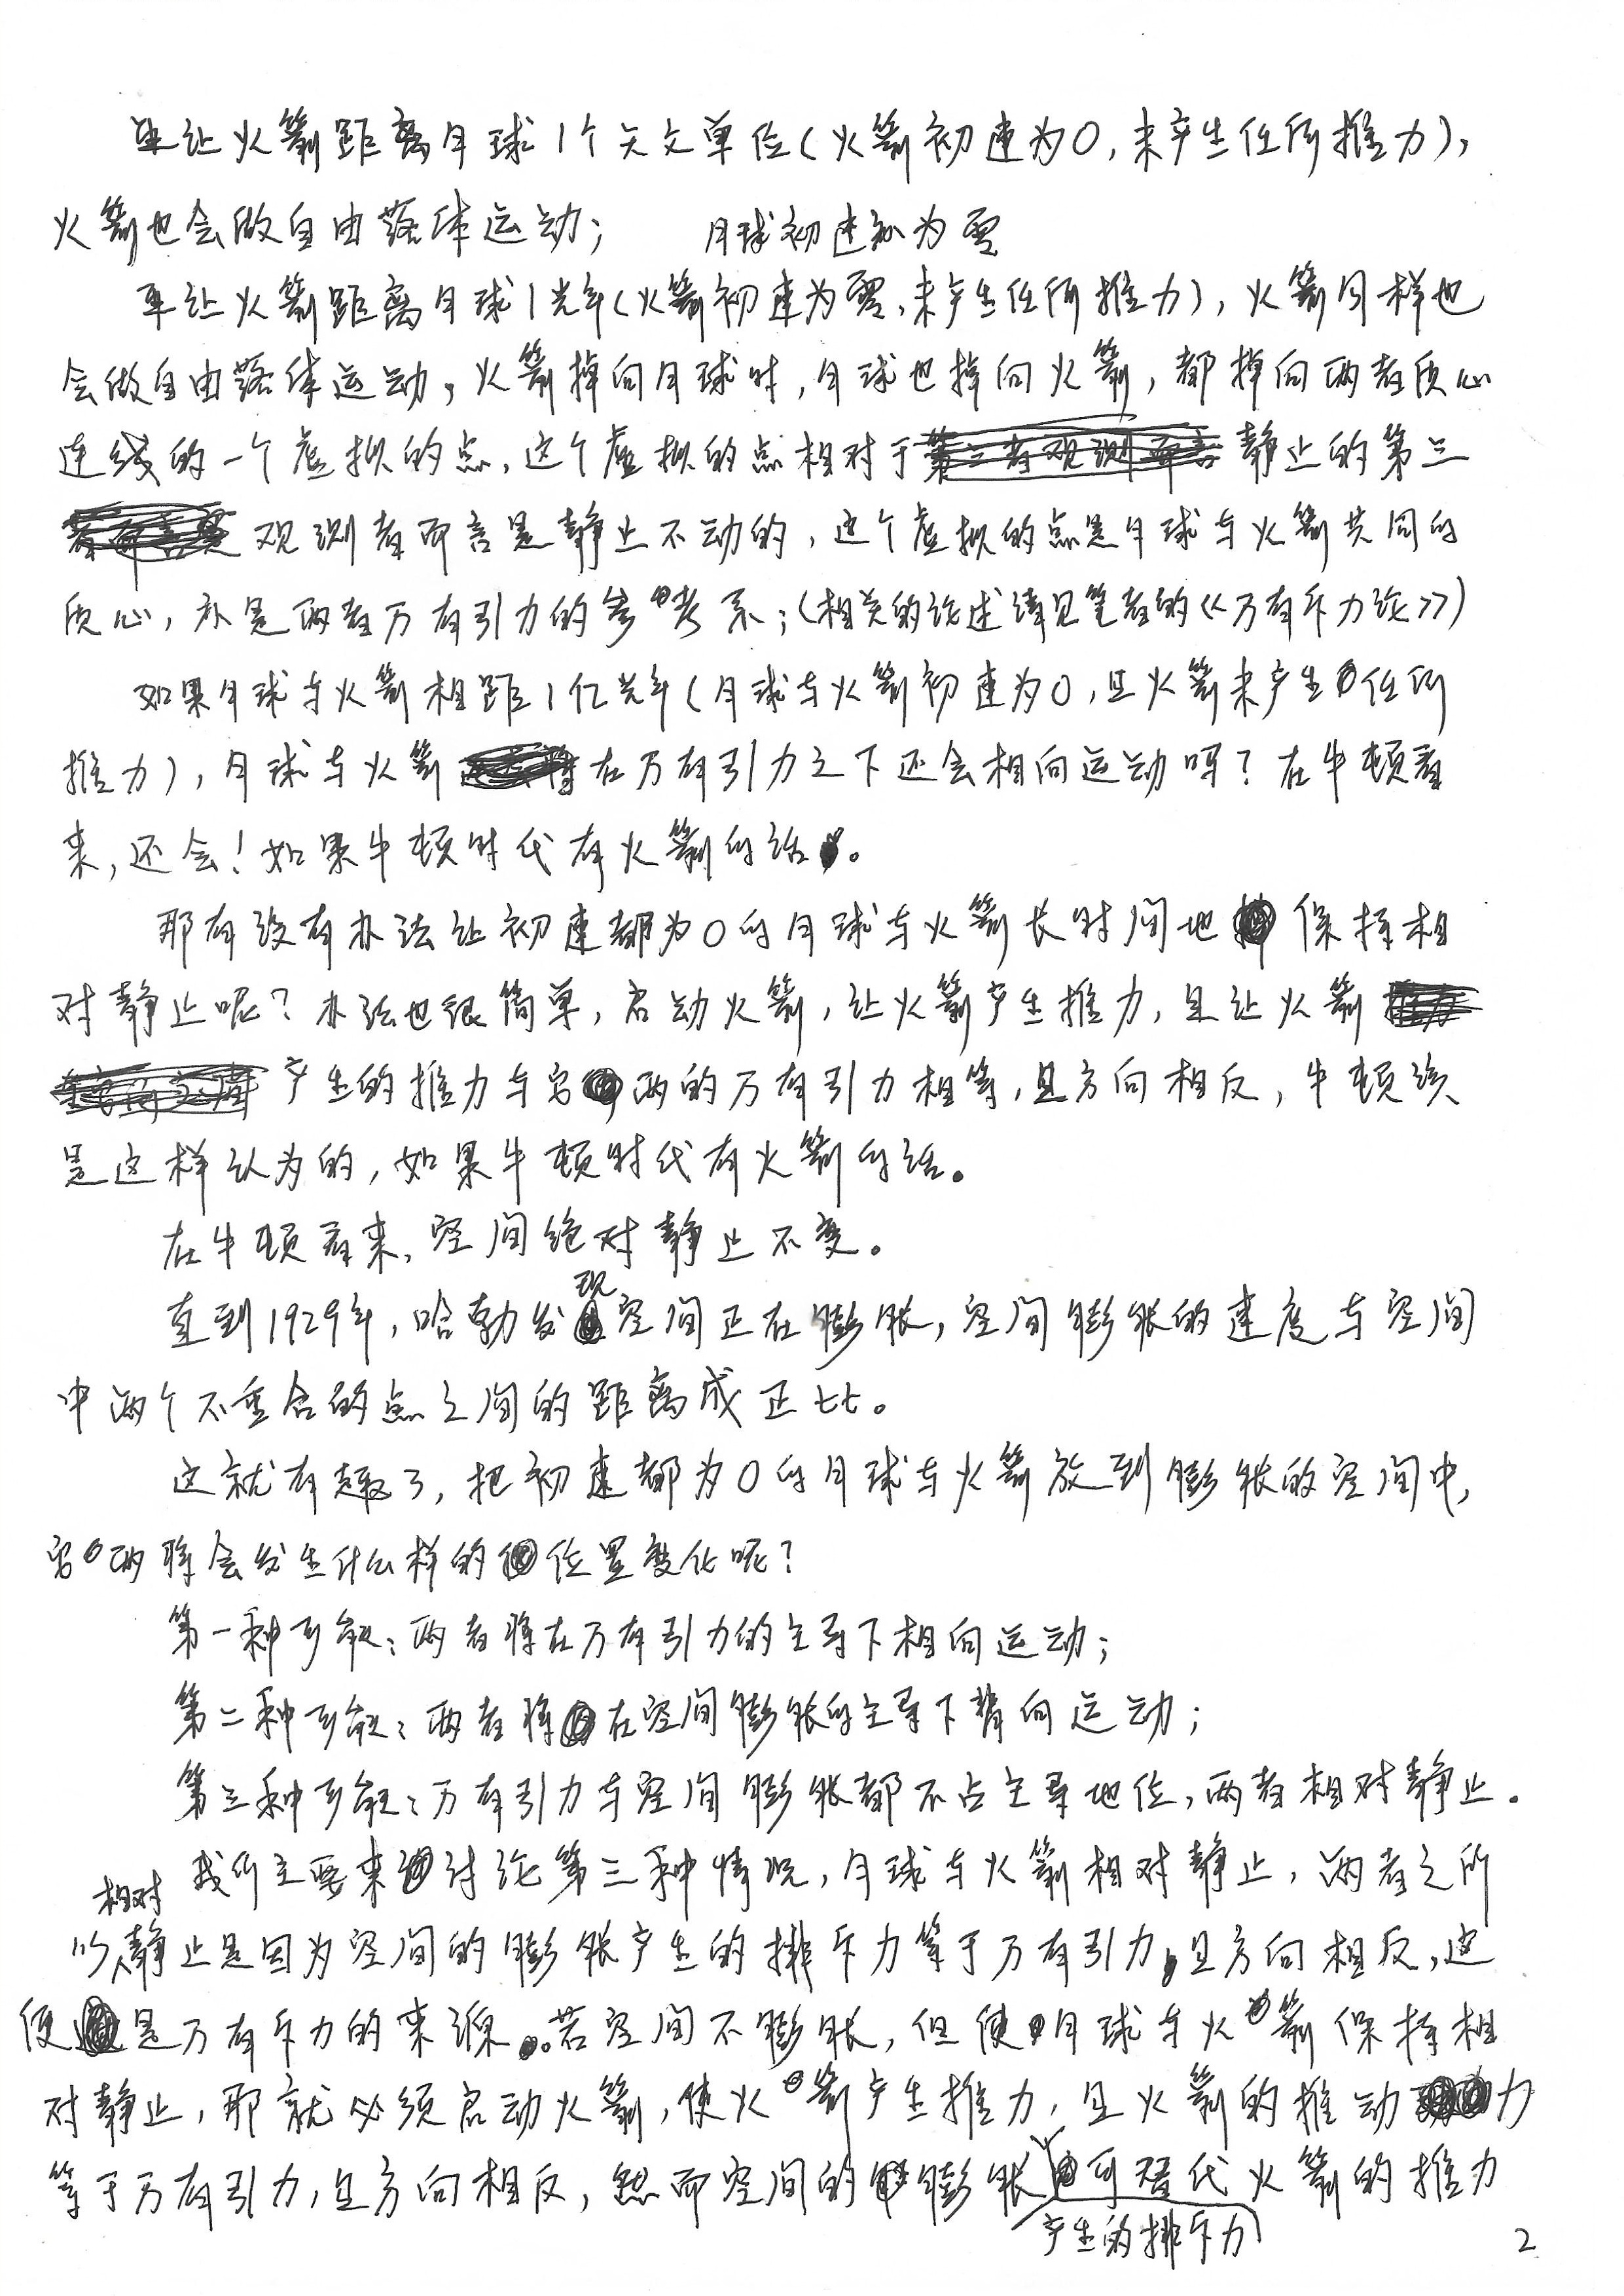 再让火箭距离月球1个天文单位(火箭初速为0,未产生任何推力),
火箭也会做自由落体运动;
月球初速和为零
再让火箭距离月球1光年(火箭初速为零,未产生任何推力),火箭同样也
会做自由落体运动,火箭掉向月球时,月球也掉向火箭,都掉向两者质心
连线的一个虚拟的点,这个虚拟的点相对于静止的第三
观测者而言是静止不动的,这个虚拟的点是月球与火箭共同的
质心,亦是两者万有引力的参考系;(相关的论述请见笔者的《万有斥力论》)
如果月球与火箭相距1亿光年(月球与火箭初速为0,且火箭未产生任何
推力),月球与火箭在万有引力之下还会相向运动吗?在牛顿看
来,还会!如果牛顿时代有火箭的话。
那有没有办法让初速都为0的月球与火箭长时间地保持相
对静止呢?办法也很简单,启动火箭,让火箭产生推力,且让火箭
产生的推力与它俩的万有引力相等,且方向相反,牛顿该
是这样认为的,如果牛顿时代有火箭的话。
在牛顿看来,空间绝对静止不变。
直到1929年,哈勃发现空间正在膨胀,空间膨胀的速度与空间
中两个不重合的点之间的距离成正比。
这就有趣了,把初速都为0的月球与火箭放到膨胀的空间中,
它俩将会发生什么样的位置变化呢?
第一种可能:两者将在万有引力的主导下相向运动;
第二种可能:两者将在空间膨胀的主导下背向运动;
第三种可能:万有引力与空间膨胀都不占主导地位,两者相对静止.
我们主要来讨论第三种情况,月球与火箭相对静止,两者之所
以相对静止是因为空间的膨胀产生的排斥力等于万有引力,且方向相反,这
便是万有斥力的来源。若空间不膨胀,但使月球与火箭保持相
对静止,那就必须启动火箭,使火箭产生推力,且火箭的推动力
等于万有引力,且方向相反,然而空间的膨胀产生的排斥力可替代火箭的推力
2